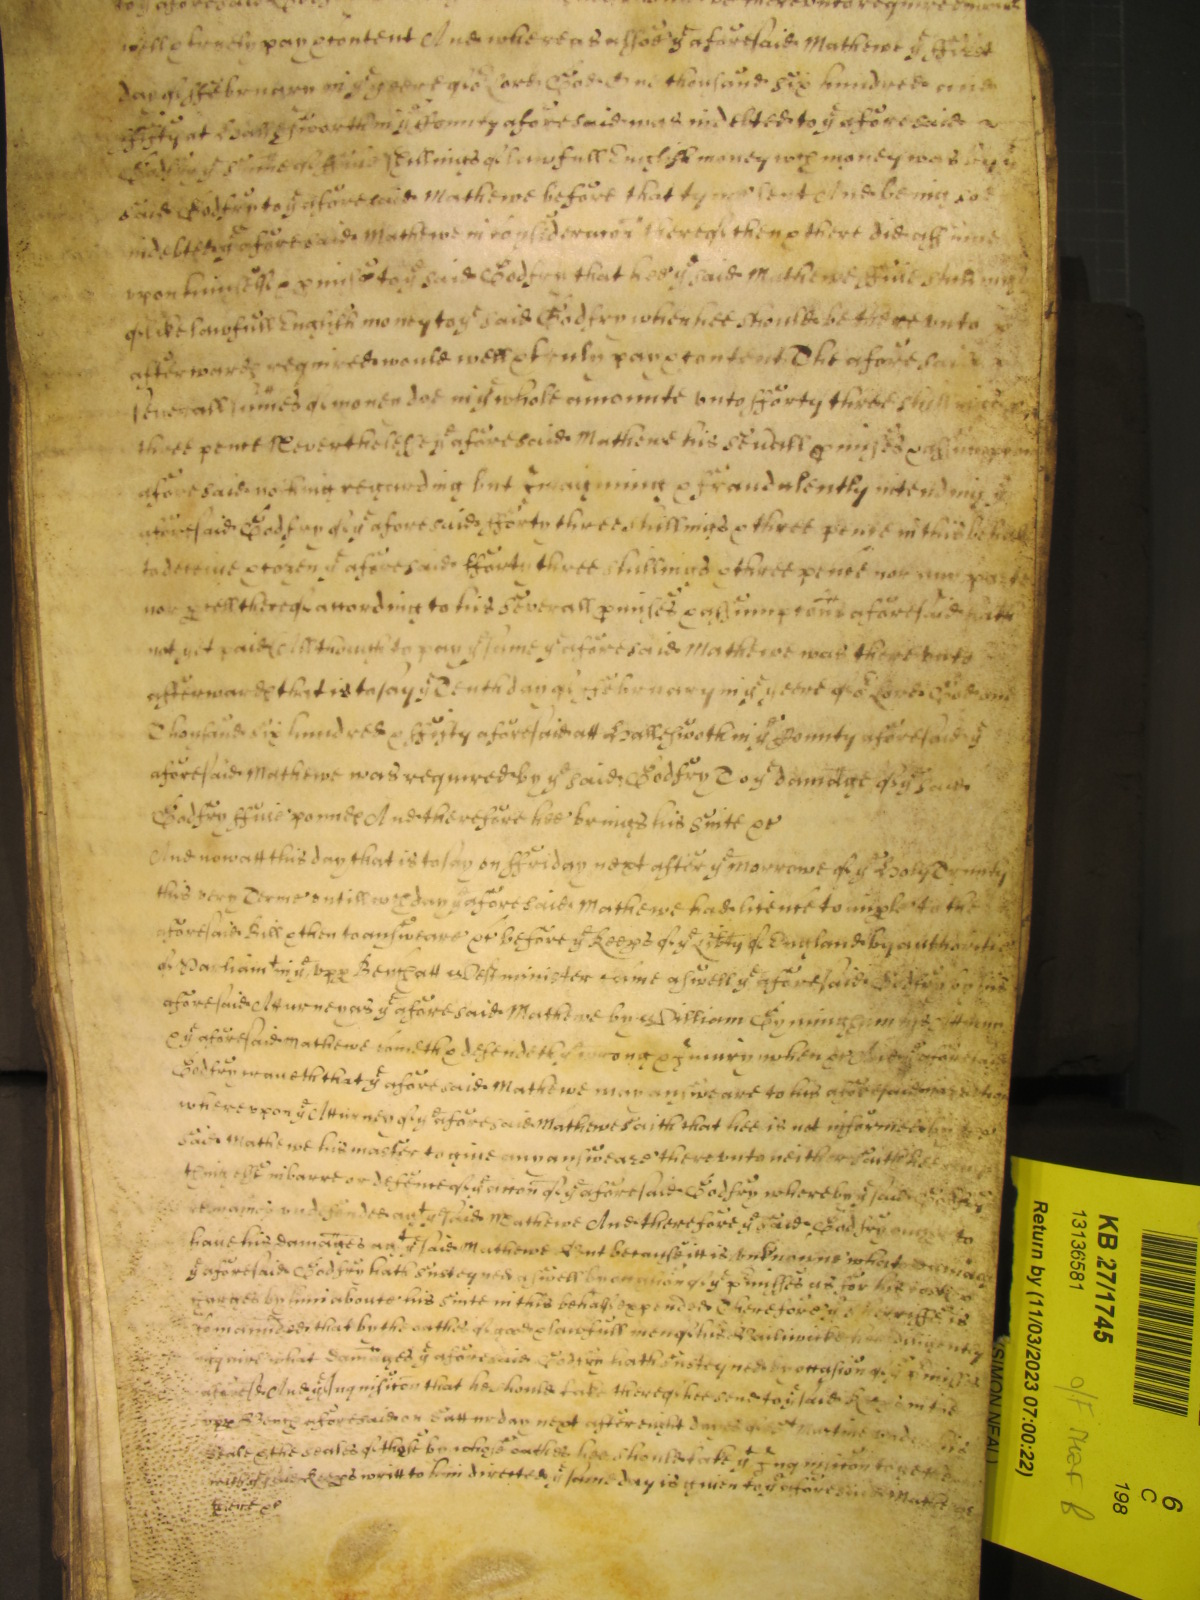 well & truely pay & content And whereas alsoe yͤ aforesaid Mathewe yͤ ffirst
day of ffebruary in yͤ yeere of oͬ Lord God one thousand six hundred and
ffifty at Hallesworth in yͤ County aforesaid was indebted to yͤ aforesaid
Godfry yͤ summe of ffive shillings of lawfull English money wch money was by yͤ
said Godfry to yͤ aforesaid Mathewe before that tyme lent And being soe
indebted yͤ aforesaid Mathewe in consideracōn thereof then & there did assume
upon himselfe & p̱mise to yͤ said Godfry that hee yͤ said Mathewe ffive shillings
of like lawfull English money to yͤ said Godfry when hee should be thereunto
afterwards required would well & truly pay & content The aforesaid
severall sumes of money doe in yͤ whole amounte unto fforty three shillings &
three pence Neverthelesse yͤ aforesaid Mathewe his sevall p̱mises & assumpcons
aforesaid nothing regarding but Imagining & fraudulently intending yͤ
aforesaid Godfry of yͤ aforesaid fforty three shillings & three pence in this behalfe
to deceive & cozen yͤ aforesaid fforty three shillings & three pence nor any parte
nor p̱cell thereof according to his severall p̱mises & assumpcōns aforesaid hath
not yet paid Allthough to pay yͤ same yͤ aforesaid Mathewe was thereunto
afterwards that is to say yͤ Tenth day of ffebruary in yͤ yeere of oͬ Lord God one
Thousand six hundred & ffifty aforesaid att Hallesworth in yͤ County aforesaid by yͤ
aforesaid Mathewe was required by yͤ said Godfry To yͤ damāge of yͤ said
Godfry ffive pounds And therefore hee brings his suite &c
And now att this day that is to say on ffriday next after yͤ morrowe of yͤ Holy Trinity
this very Terme untill wch day yͤ aforesaid Mathewe had licence to imple to the
aforesaid Bill & then to answeare &c before yͤ Keeps of yͤ Libty of England by authoritie
of Parliamᵗ in yͤ upp Bench att Westminster came aswell yͤ aforesaid Godfry by his
aforesaid Atturney as yͤ aforesaid Mathewe by William his Atturney
& yͤ aforesaid Mathewe cometh & defendeth yͤ wrong & Iniury when &c And yͤ aforesaid
Godfry craveth that yͤ aforesaid Mathewe may answeare to his aforesaid
whereupon yͤ Atturney of yͤ aforesaid Mathewe saith that hee is not informed by yͤ
said Mathewe his master to give any answeare thereunto neither saith hee any
thing else in barre or defence of yͤ accōn of yͤ aforesaid Godfry whereby yͤ said Godfry
remaines undefended agᵗ yͤ said Mathewe And therefore yͤ said Godfry ought to
have his damages agᵗ yͤ said Mathewe But because itt is unknowne what damage
yͤ aforesaid Godfry hath susteyned aswell by occasion of yͤ p̱misses as for his costs &
charges by him aboute his suite in this behalfe expended Therefore yͤ Sherriffe is
Comaunded that by the oathes of good & lawfull men of his Bailiwicke hee diligently
inquire what damages yͤ aforesaid Godfry hath susteyned by occasion of yͤ p̱misses
aforesd And yͤ Inquisicōn that he should take thereof hee send to yͤ said Keeps in the
upp Bench aforesaid on Satturday next after eight dayes of Sᵗ Martine under his
seale & the seales of those by whose oathes hee should take yͭ Inquisicon together
with yͤ said Keeps writt to him directed yͤ same day is given to yͤ aforesaid Mathewe
there &c
KB 27/1745
13136581
Return by (11/03/2023 07:00:22)
(SIMON NEAL)
6
C
198